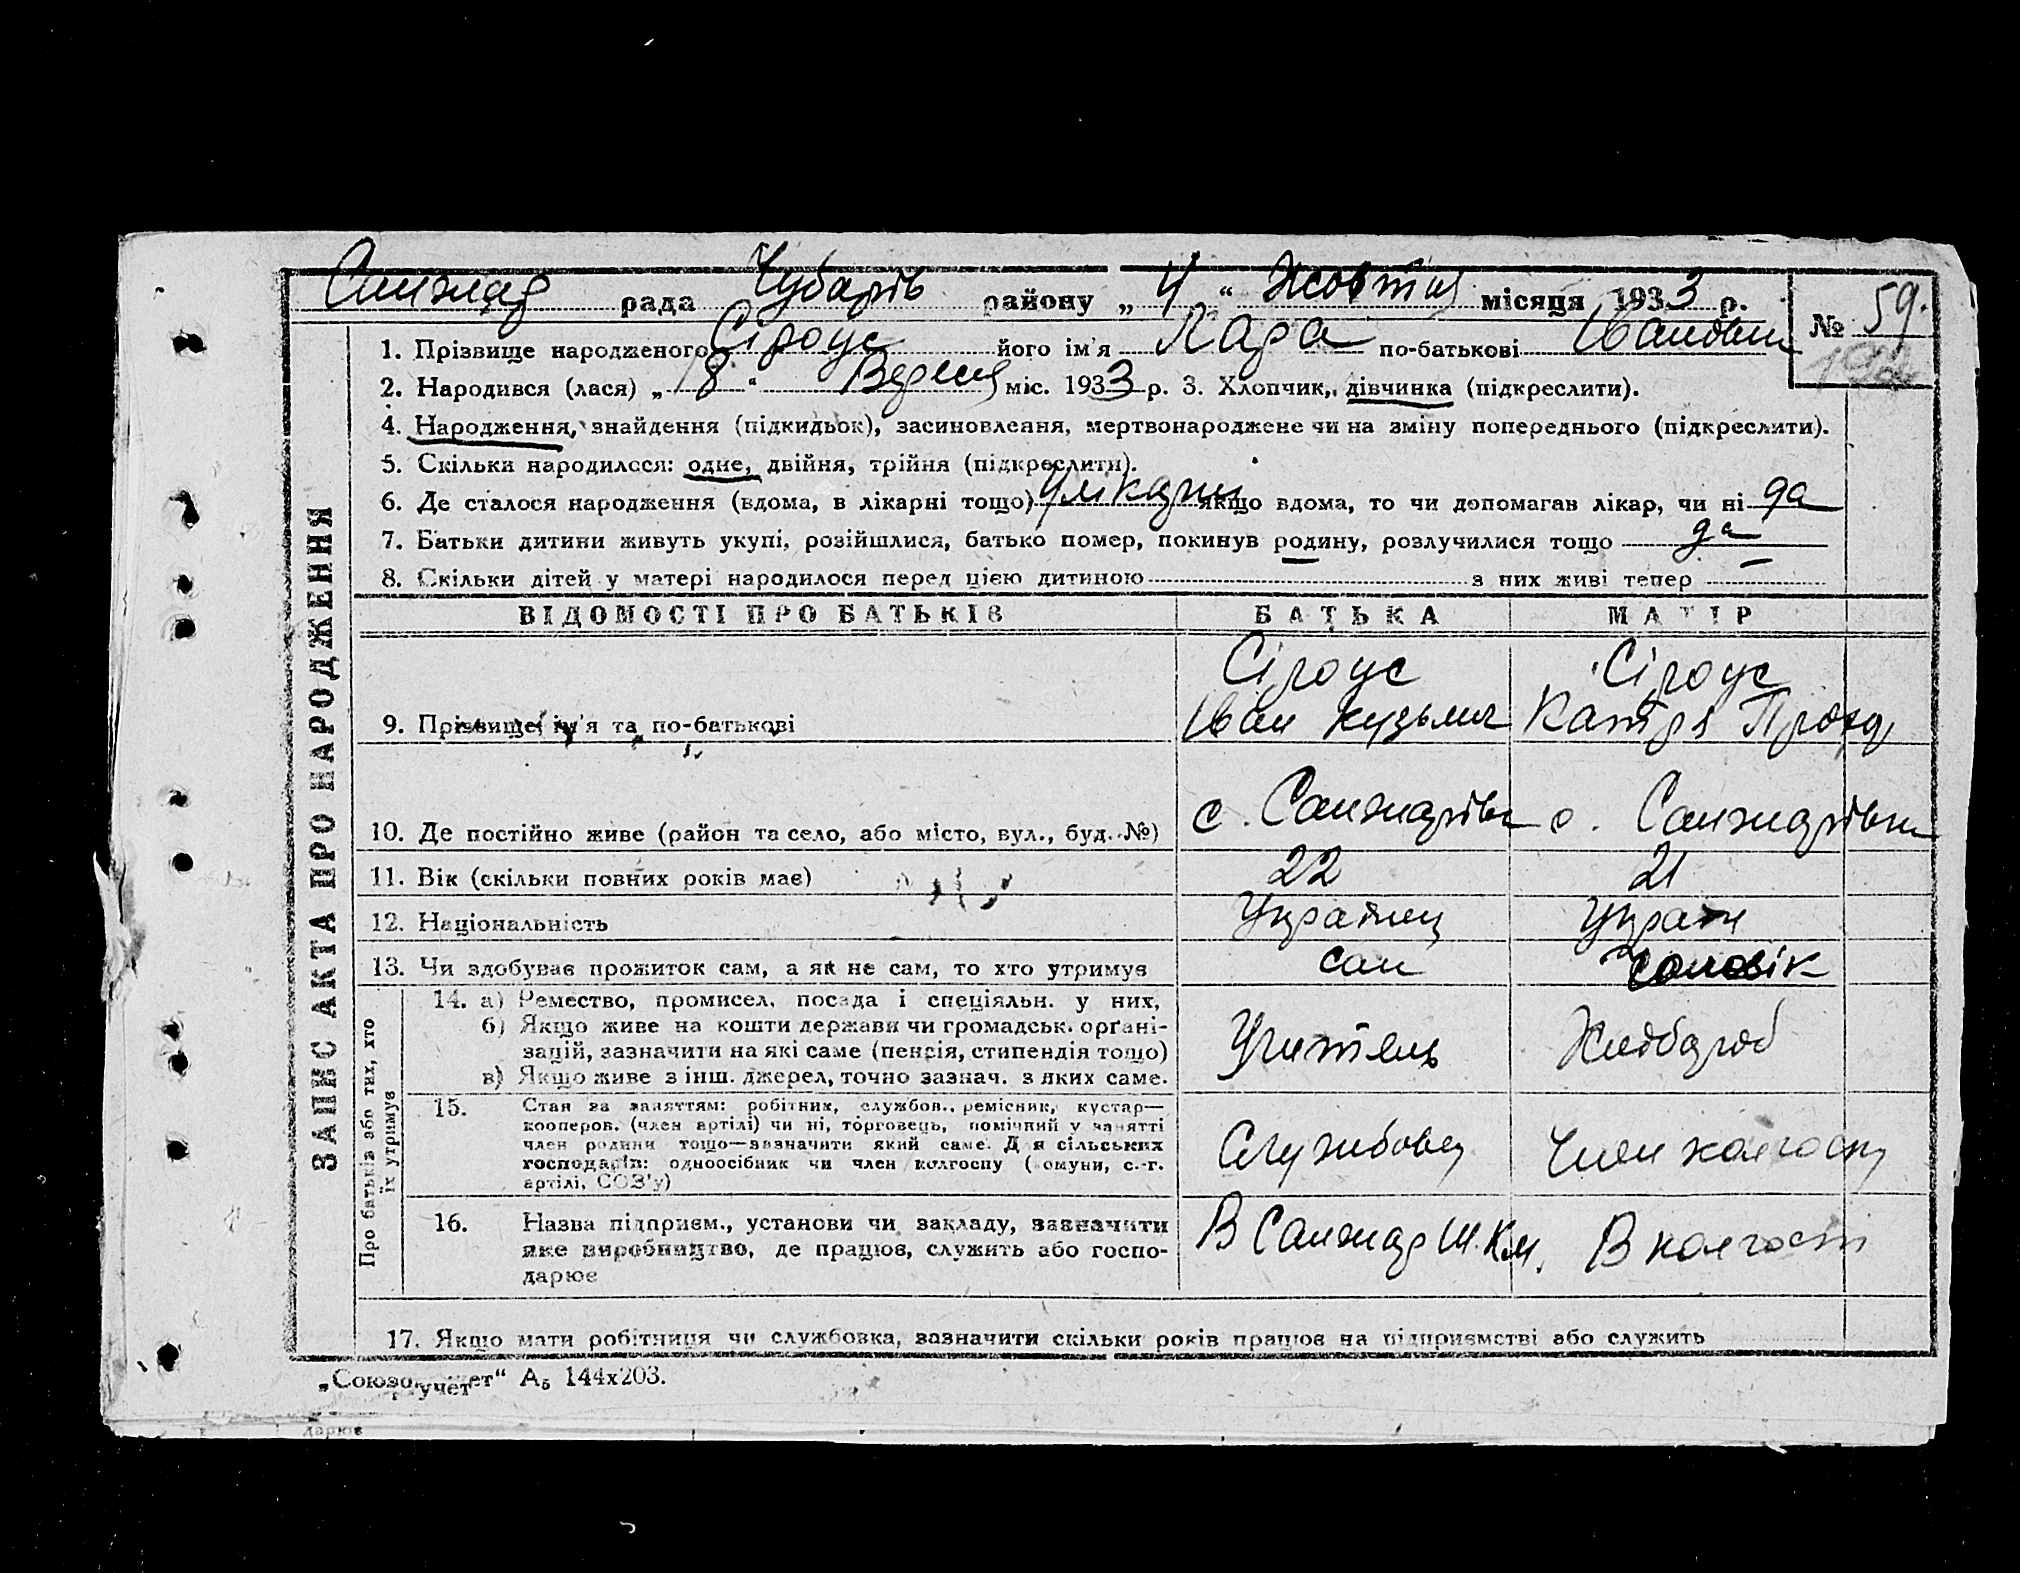 рада Чубарів району „ 4 “ Жовтня місяця 1933 р.
№ 59.
1. Прізвище народженого Сіроус його ім'я Лара по-батькові Івановна
2. Народився (лася) „ 8 “ Вересня міс. 1933 р. 3. Хлопчик, дівчинка (підкреслити).
4. Народження, знайдення (підкидьок), засиновлення, мертвонароджене чи на зміну попереднього (підкреслити).
5. Скільки народилося: одне, двійня, трійня (підкреслити).
6. Де сталося народження (вдома, в лікарні тощо) У лікарні якщо вдома, то чи допомагав лікар, чи ні да
7. Батьки дитини живуть укупі, розійшлися, батько помер, покинув родину, розлучилися тощо да
8. Скільки дітей у матері народилося перед цією дитиною з них живі тепер —
ЗАПИС АКТА ПРО НАРОДЖЕННЯ
ВІДОМОСТІ ПРО БАТЬКІВ БАТЬКА МАТІР
Сіроус Сіроус
9. Прізвище, ім'я та по-батькові Іван Кузьмич Катря
10. Де постійно живе (район та село, або місто, вул., буд. №) с. Санжарівка с. Санжарівка
11. Вік (скільки повних років має) 22 21
12. Національність Українец Україн
13. Чи здобуває прожиток сам, а як не сам, то хто утримує Сам Чоловік
Про батьків або тих, хто їх утримує
14. а) Ремество, промисел, посада і спеціяльн. у них,
б) Якщо живе на кошти держави чи громадськ. орґані-
зацій, зазначити на які саме (пенсія, стипендія тощо) Учитель Хлібороб
в) Якщо живе з інш. джерел, точно зазнач. з яких саме.
15. Стан за заняттям: робітник, службов., ремісник, кустар—
кооперов. (член артілі) чи ні, торговець, помічний у занятті
член родини тощо—зазначити який саме. Для сільських Службовец Член колгоспу
господарів: одноосібник чи член колгоспу (комуни, с.-г.
артілі, СОЗ'у)
16. Назва підприєм., установи чи закладу, зазначити В Санжар Ш.К.М. В колгоспі
яке виробництво, де працює, служить або госпо-
дарює
17. Якщо мати робітниця чи службовка, зазначити скільки років працює на підприємстві або служить
А₅ 144х203.
дарює